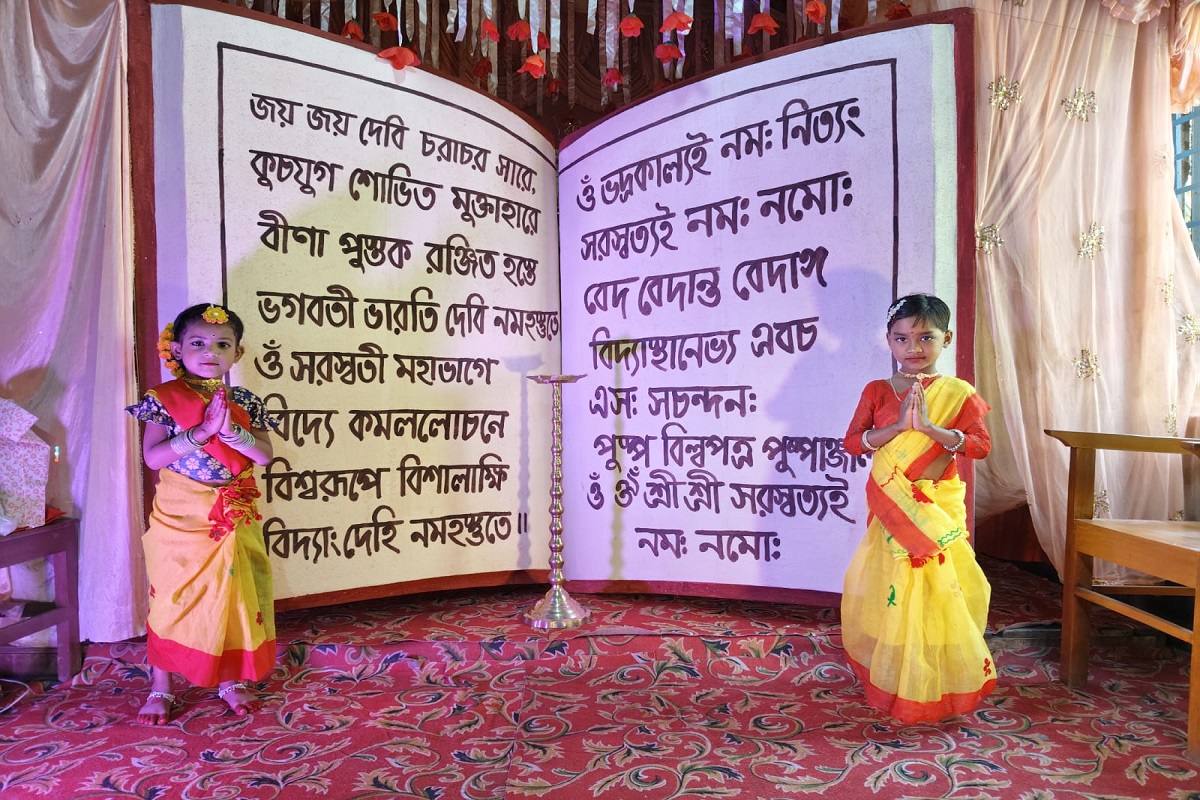 জয় জয় দেবি চরাচর সারে,
কুচযুগ শোভিত মুক্তাহারে
বীণা পুস্তক রঞ্জিত হস্তে
ভগবতী ভারতি দেবি নমহস্তুতে
ওঁ সরস্বতী মহাভাগে
বিদ্যে কমললোচনে
বিশ্বরূপে বিশালাক্ষি
বিদ্যাং দেহি নমহস্তুতে॥
ওঁ ভদ্রকাল্যই নমঃ নিত্যং
সরস্বত্যই নমঃ নমোঃ
বেদ বেদান্ত বেদাঙ্গ
বিদ্যাস্থানেভ্য এবচ
এসঃ সচন্দনঃ
পুষ্প বিল্বপত্র
ওঁ শ্রী শ্রী সরস্বত্যই
নমঃ নমোঃ